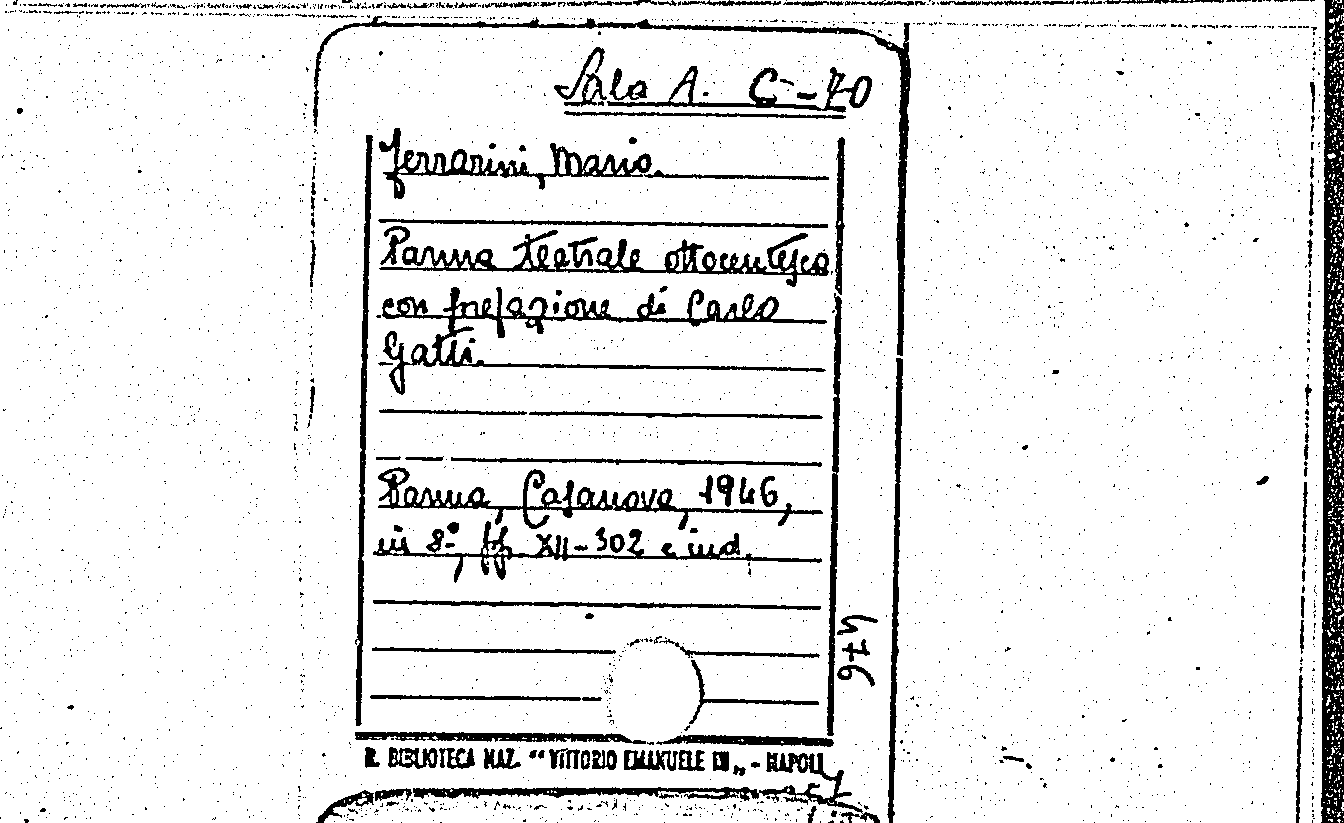 Sala A. C-70
Ferrarini, Mario.
Parma teatrale ottocentesca
con prefazione di Carlo
Gatti.
Parma, Casanova, 1946,
in 8º, pp. XII-302 e ind.
476
R. BIBLIOTECA NAZ. “VITTORIO EMANUELE III„ - NAPOLI